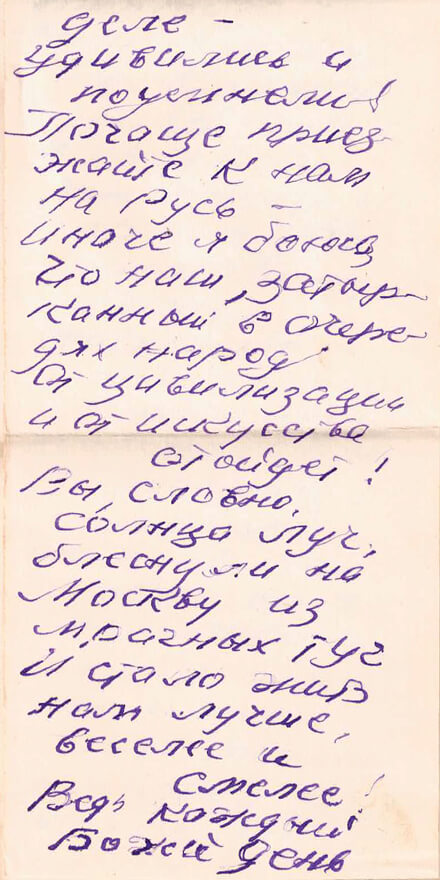 деле –
удивились и
поумнели!
Почаще приез-
жайте к нам
на Русь –
иначе я боюсь
Что наш, затыр-
канный в очере-
дях народ
От цивилизации
и от искусства
отойдет!
Вы, словно,
солнца луч,
блеснули на
Москву из
мрачных туч
И стало жить
нам лучше,
веселее и
смелее!
Ведь каждый
Божий день